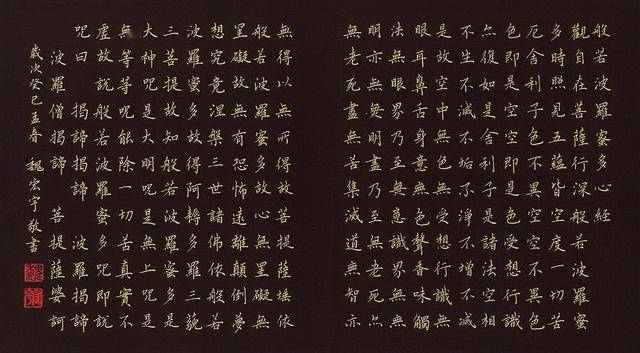 般若波羅蜜多心經
觀自在菩薩行深般若波羅蜜
多時照見五蘊皆空度一切苦
厄舍利子色不異空空不異色
色即是空空即是色受想行識
亦復如是舍利子是諸法空相
不生不滅不垢不淨不增不減
是故空中無色無受想行識無
眼耳鼻舌身意無色聲香味觸
法無眼界乃至無意識界無無
明亦無無明盡乃至無老死亦
無老死盡無苦集滅道無智亦
無得以無所得故菩提薩埵依
般若波羅蜜多故心無罣礙無
罣礙故無有恐怖遠離顛倒夢
想究竟涅槃三世諸佛依般若
波羅蜜多故得阿耨多羅三藐
三菩提故知般若波羅蜜多是
大神呪是大明呪是無上呪是
無等等呪能除一切苦真實不
虛故說般若波羅蜜多呪即說
呪曰 揭諦揭諦 波羅揭諦
波羅僧揭諦 菩提薩婆訶
歲次癸巳孟春 魏宏宇敬書